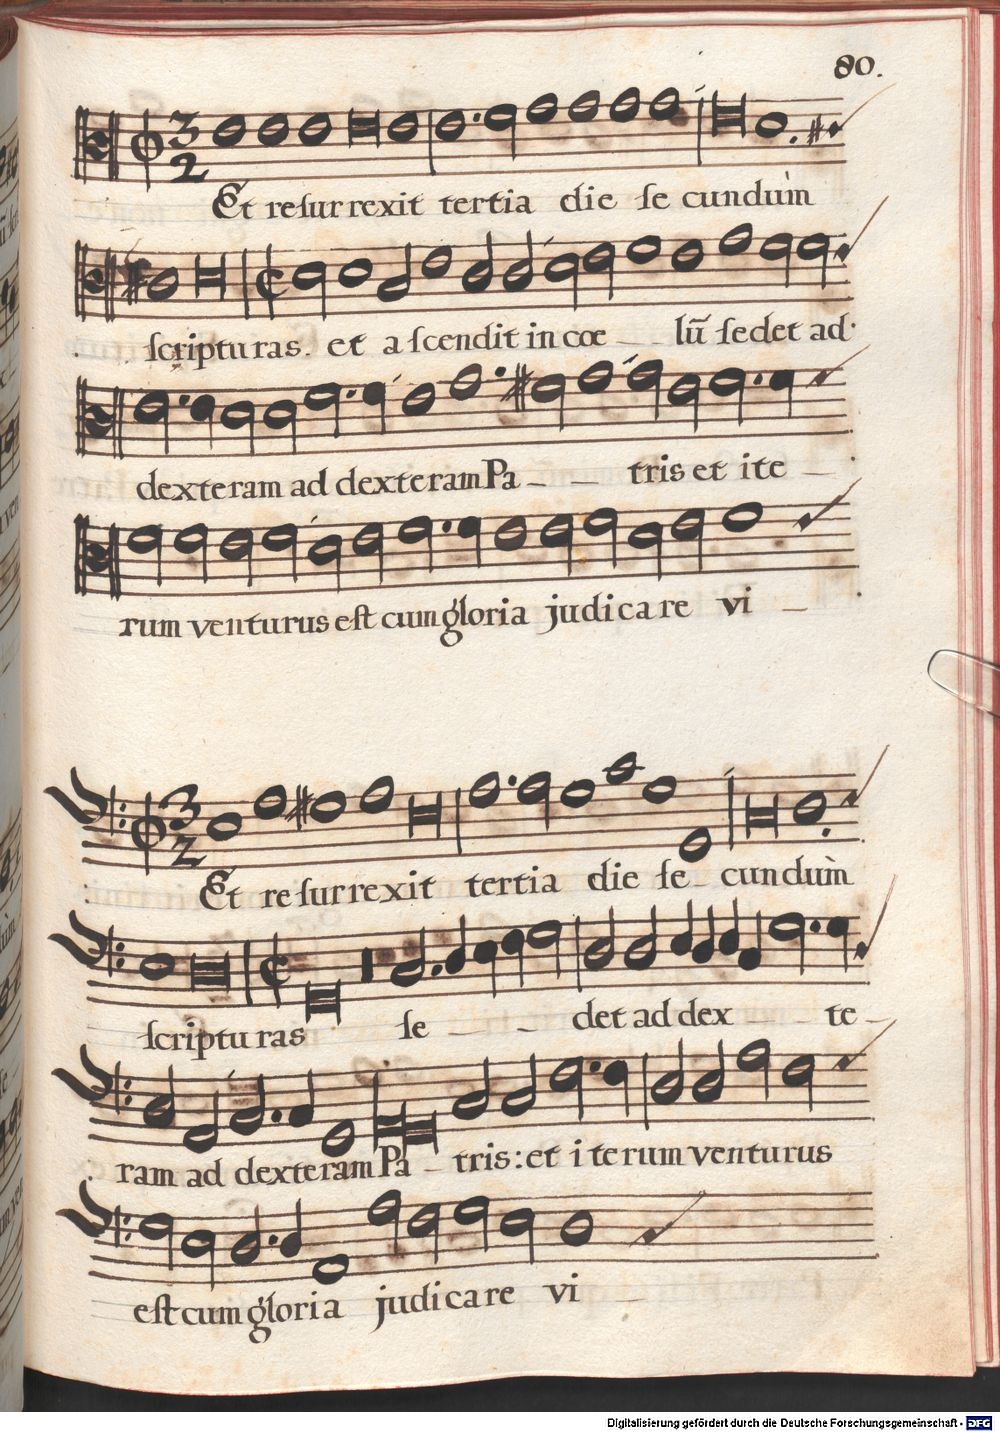 80.
Et resurrexit tertia die se cundum̀
scripturas. et ascendit in cœ _ lū sedet ad
dexteram ad dexteram Pa _ _ tris et ite _
rum venturus est cum gloria judicare vi _
Et resurrexit tertia die se _ cundum̀
scripturas se _ _ det ad dex _ _ te _
ram ad dexteram Pa _ tris: et iterum venturus
est cum gloria judicare vi _
Digitalisierung gefördert durch die Deutsche Forschungsgemeinschaft - DFG